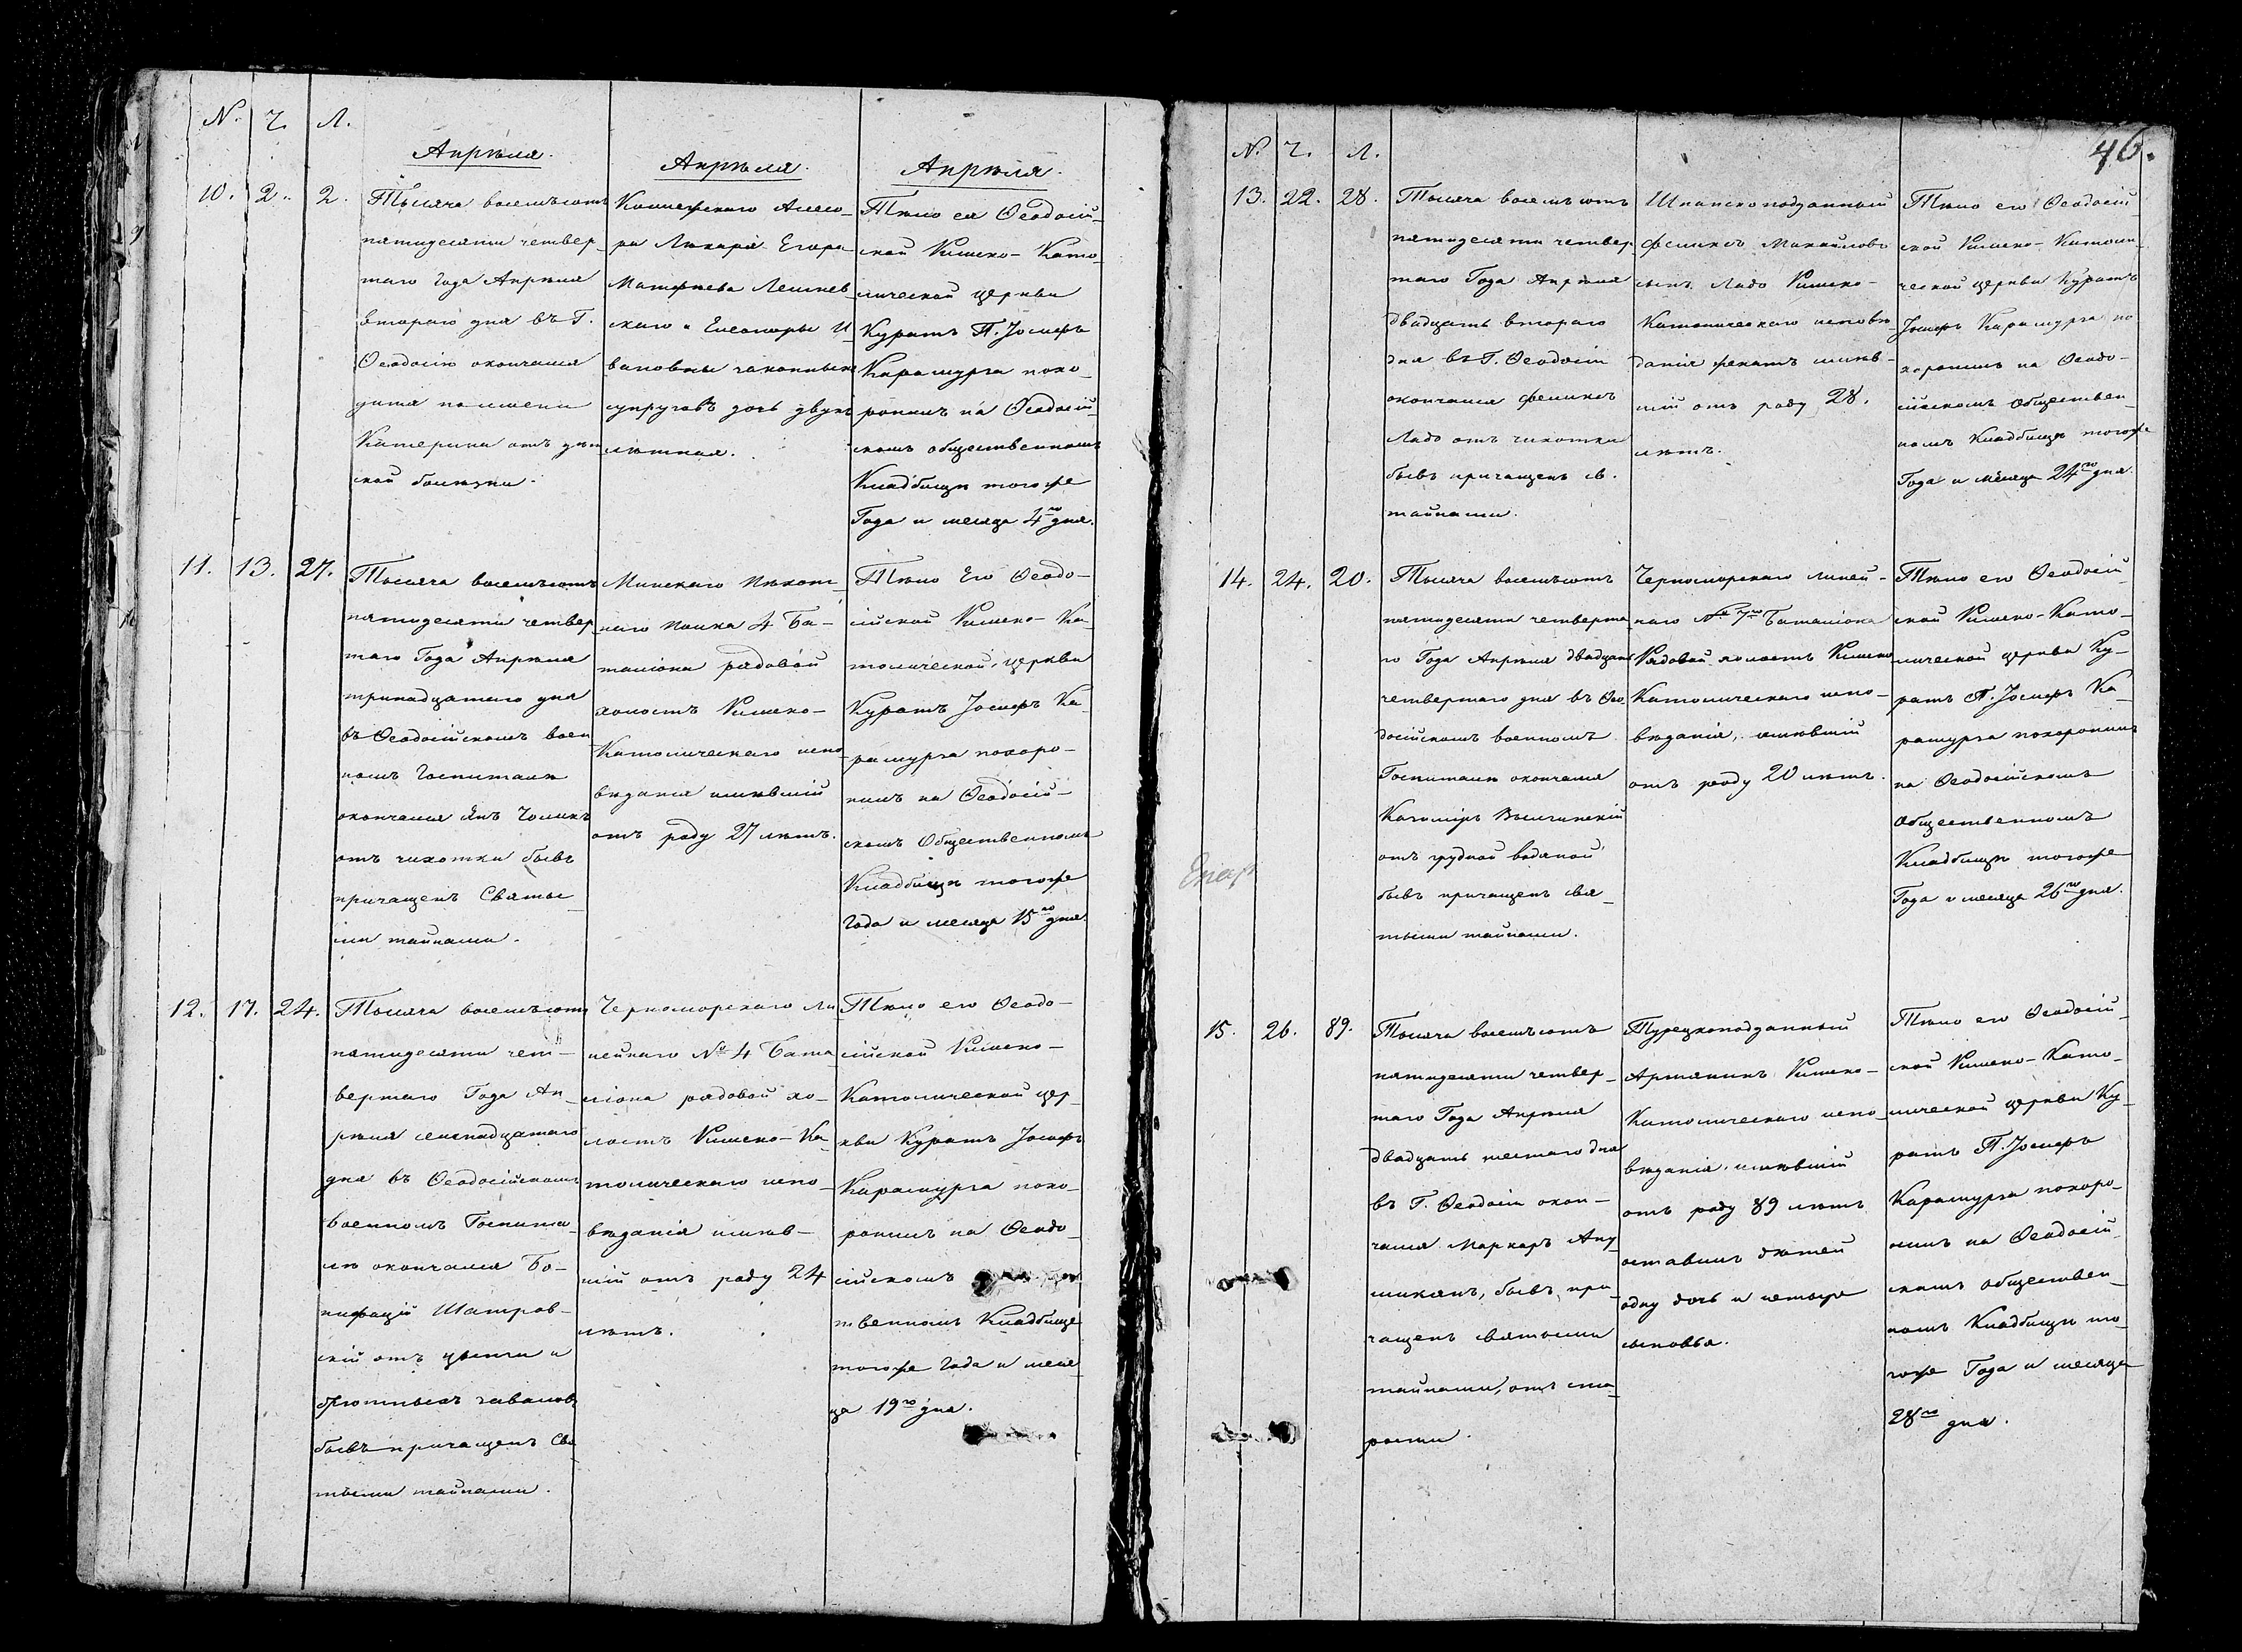 N. Ч. Л.
Апрѣля.
10. 2. 2.
Тысяча восемьсотъ
пятидесяти четвер_
таго Года Апрѣля
втораго дня въ Г.
Ѳеодосіи окончалася
дитя по имени
Катерина отъ дѣт
ской болѣзни.
Апрѣля.
Ассесо_
ра Лѣкаря Егора
Матфѣева
скаго и Елеоноры И_
вановны законныхъ
супруговъ дочь двухъ
лѣтная.
Апрѣля.
Тѣло ея Ѳеодосій_
ской Римско-Като_
лической церкви
Куратъ П. Іосифъ
Карашурга похо_
ронилъ на Ѳеодосій_
скомъ общественномъ
Кладбищѣ тогоже
Года и месяца 4го дня.
11. 13. 27.
Тысяча восемьсотъ
пятидесяти четвер_
таго Года Апрѣля
тринадцатаго дня
въ Ѳеодосійскомъ воен_
номъ Госпиталѣ
окончался Янъ
отъ чихотки бывъ
причащенъ Святы_
ми тайнами.
Минскаго Пѣхот_
наго Полка 4 Ба-
таліона рядовой
холостъ Римско-
Католическаго испо_
вѣданія имѣвшій
отъ роду 27 лѣтъ.
Тѣло Его Ѳеодо-
сійской Римско-Ка_
толической церкви
Куратъ Іосифъ Ка_
рашурга похоро-
нилъ на Ѳеодосій-
скомъ Общественномъ
Кладбищѣ тогоже
Года и месяца 15го дня
12. 17. 24.
Тысяча восемьсотъ
пятидесяти чет-
вертаго Года Ап_
рѣля семнадцатаго
дня въ Ѳеодосійскомъ
военномъ Госпита_
лѣ окончался Бо-
нифацій Шатров-
скій отъ цынги и
бывъ причащенъ Свя
тыми тайнами.
Черноморскаго Ли_
нейнаго № 4 Бата
ліона рядовой хо-
лостъ Римско-Ка_
толическаго испо-
вѣданія имѣв-
шій отъ роду 24
лѣтъ.
Тѣло его Ѳеодо-
сійской Римско-
Католической цер_
кви Куратъ Іосифъ
Карашурга похо_
ронилъ на Ѳеодо_
сійскомъ
твенномъ Кладбище
тогоже Года и меся
ца 19го дня.
46.
N. Ч. Л.
13. 22. 28.
Тысяча восемьсотъ
пятидесяти четвер_
таго Года Апрѣля
двадцать втораго
дня въ Г. Ѳеодосіи
окончался Феликсъ
Ладо отъ чихотки
бывъ причащенъ св.
тайнами.
Шпанскоподданный
Феликсъ Михайловъ
сынъ Ладо Римско-
Католическаго исповѣ_
данія женатъ имѣв-
шій отъ роду 28.
лѣтъ.
Тѣло его Ѳеодосій_
ской Римско-Католи_
ческой церкви Куратъ
Іосифъ Карашурга по
хоронилъ на Ѳеодо-
сійскомъ Обществен_
номъ Кладбищѣ тогоже
Года и месяца 24го дня.
14. 24. 20.
Тысяча восемьсотъ
пятидесяти четверта_
го Года Апрѣля двадцать
четвертаго дня въ Ѳео_
досійскомъ военномъ
Госпиталѣ окончался
отъ грудной водяной
бывъ причащенъ свя_
тыми тайнами.
Черноморскаго линей-
наго № 7го Баталіона
Рядовой холостъ Римско
Католическаго испо-
вѣданія, имѣвшій
отъ роду 20 лѣтъ.
Тѣло его Ѳеодосій_
ской Римско-Като_
лической церкви Ку-
ратъ П. Іосифъ Ка_
рашурга похоронилъ
на Ѳеодосійскомъ
Общественномъ
Кладбищѣ тогоже
Года и месяца 26го дня.
15. 26. 89.
Тысяча восемьсотъ
пятидесяти четвер_
таго Года Апрѣля
двадцать шестаго дня
въ Г. Ѳеодосіи окон-
чался Маркаръ
бывъ при_
чащенъ святыми
тайнами, отъ ста_
рости.
Турецкоподданный
Армянинъ Римско-
Католическаго испо_
вѣданія, имѣвшій
отъ роду 89 лѣтъ
оставилъ дѣтей
одну дочь и четыре
сыновья.
Тѣло его Ѳеодосій_
ской Римско-Като_
лической церкви Ку_
ратъ П. Іосифъ
Карашурга похоро_
нилъ на Ѳеодосій_
скомъ обществен_
номъ Кладбищѣ то_
гоже Года и месяца
28го дня.